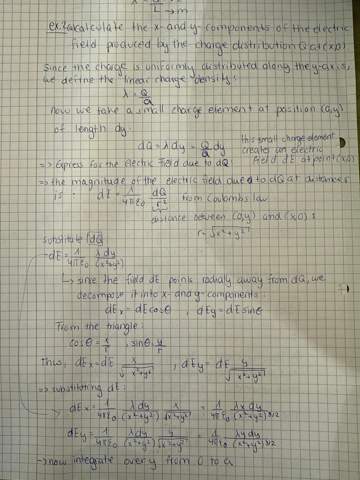 C → m
ex. 2a calculate the x- and y- components of the electric
field produced by the charge distribution Q at (x,0)
Since the charge is uniformly distributed along the y-axis,
we define the linear charge density:
λ = Q/a
Now we take a small charge element at position (0,y)
of length dy.
dQ = λ dy = Q/a dy
this small charge element
creates an electric
field dE at point (x,0)
=> Express for the electric field due to dQ
=> the magnitude of the electric field due to dQ at distance r
is dE = 1/4πε₀ dQ/r² from Coulombs law
distance between (0,y) and (x,0):
r = √x²+y²
substitute dQ
dE = 1/4πε₀ λdy/(x²+y²)
↳ since the field dE points radially away from dQ, we
decompose it into x- and y- components:
dEx = dE cosθ , dEy = dE sinθ
From the triangle:
cosθ = x/r , sinθ = y/r
Thus, dEx = dE x/√x²+y² , dEy = dE y/√x²+y²
=> substituting dE:
dEx = 1/4πε₀ λdy/(x²+y²) x/√x²+y² = 1/4πε₀ λxdy/(x²+y²)3/2
dEy = 1/4πε₀ λdy/(x²+y²) y/√x²+y² = 1/4πε₀ λydy/(x²+y²)3/2
→ now integrate over y from 0 to a